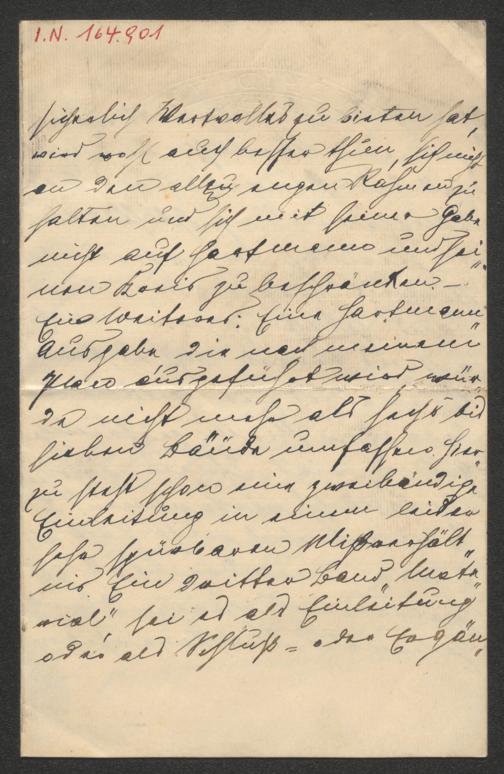 I.N. 164.901
sicherlich Wertvolles zu bieten hat,
wird wohl auch besser thun, sich nicht
an den allzu engen Rahmen zu
halten und sich mit seiner Gabe
nicht auf Hartmann und sei-
nen Kreis zu beschränken. –
Ein Weiteres: Eine Hartmann
Ausgabe die nach meinem
Plan ausgeführt wird, wür-
de nicht mehr als sechs bis
sieben Bände umfassen. Hier-
zu steht schon eine zweibändige
Einleitung in einem leider
sehr spürbaren Mißverhält
nis. Ein dritter Band „Mate-
rial" sei es als Einleitung
oder als Schluß- oder Ergän-